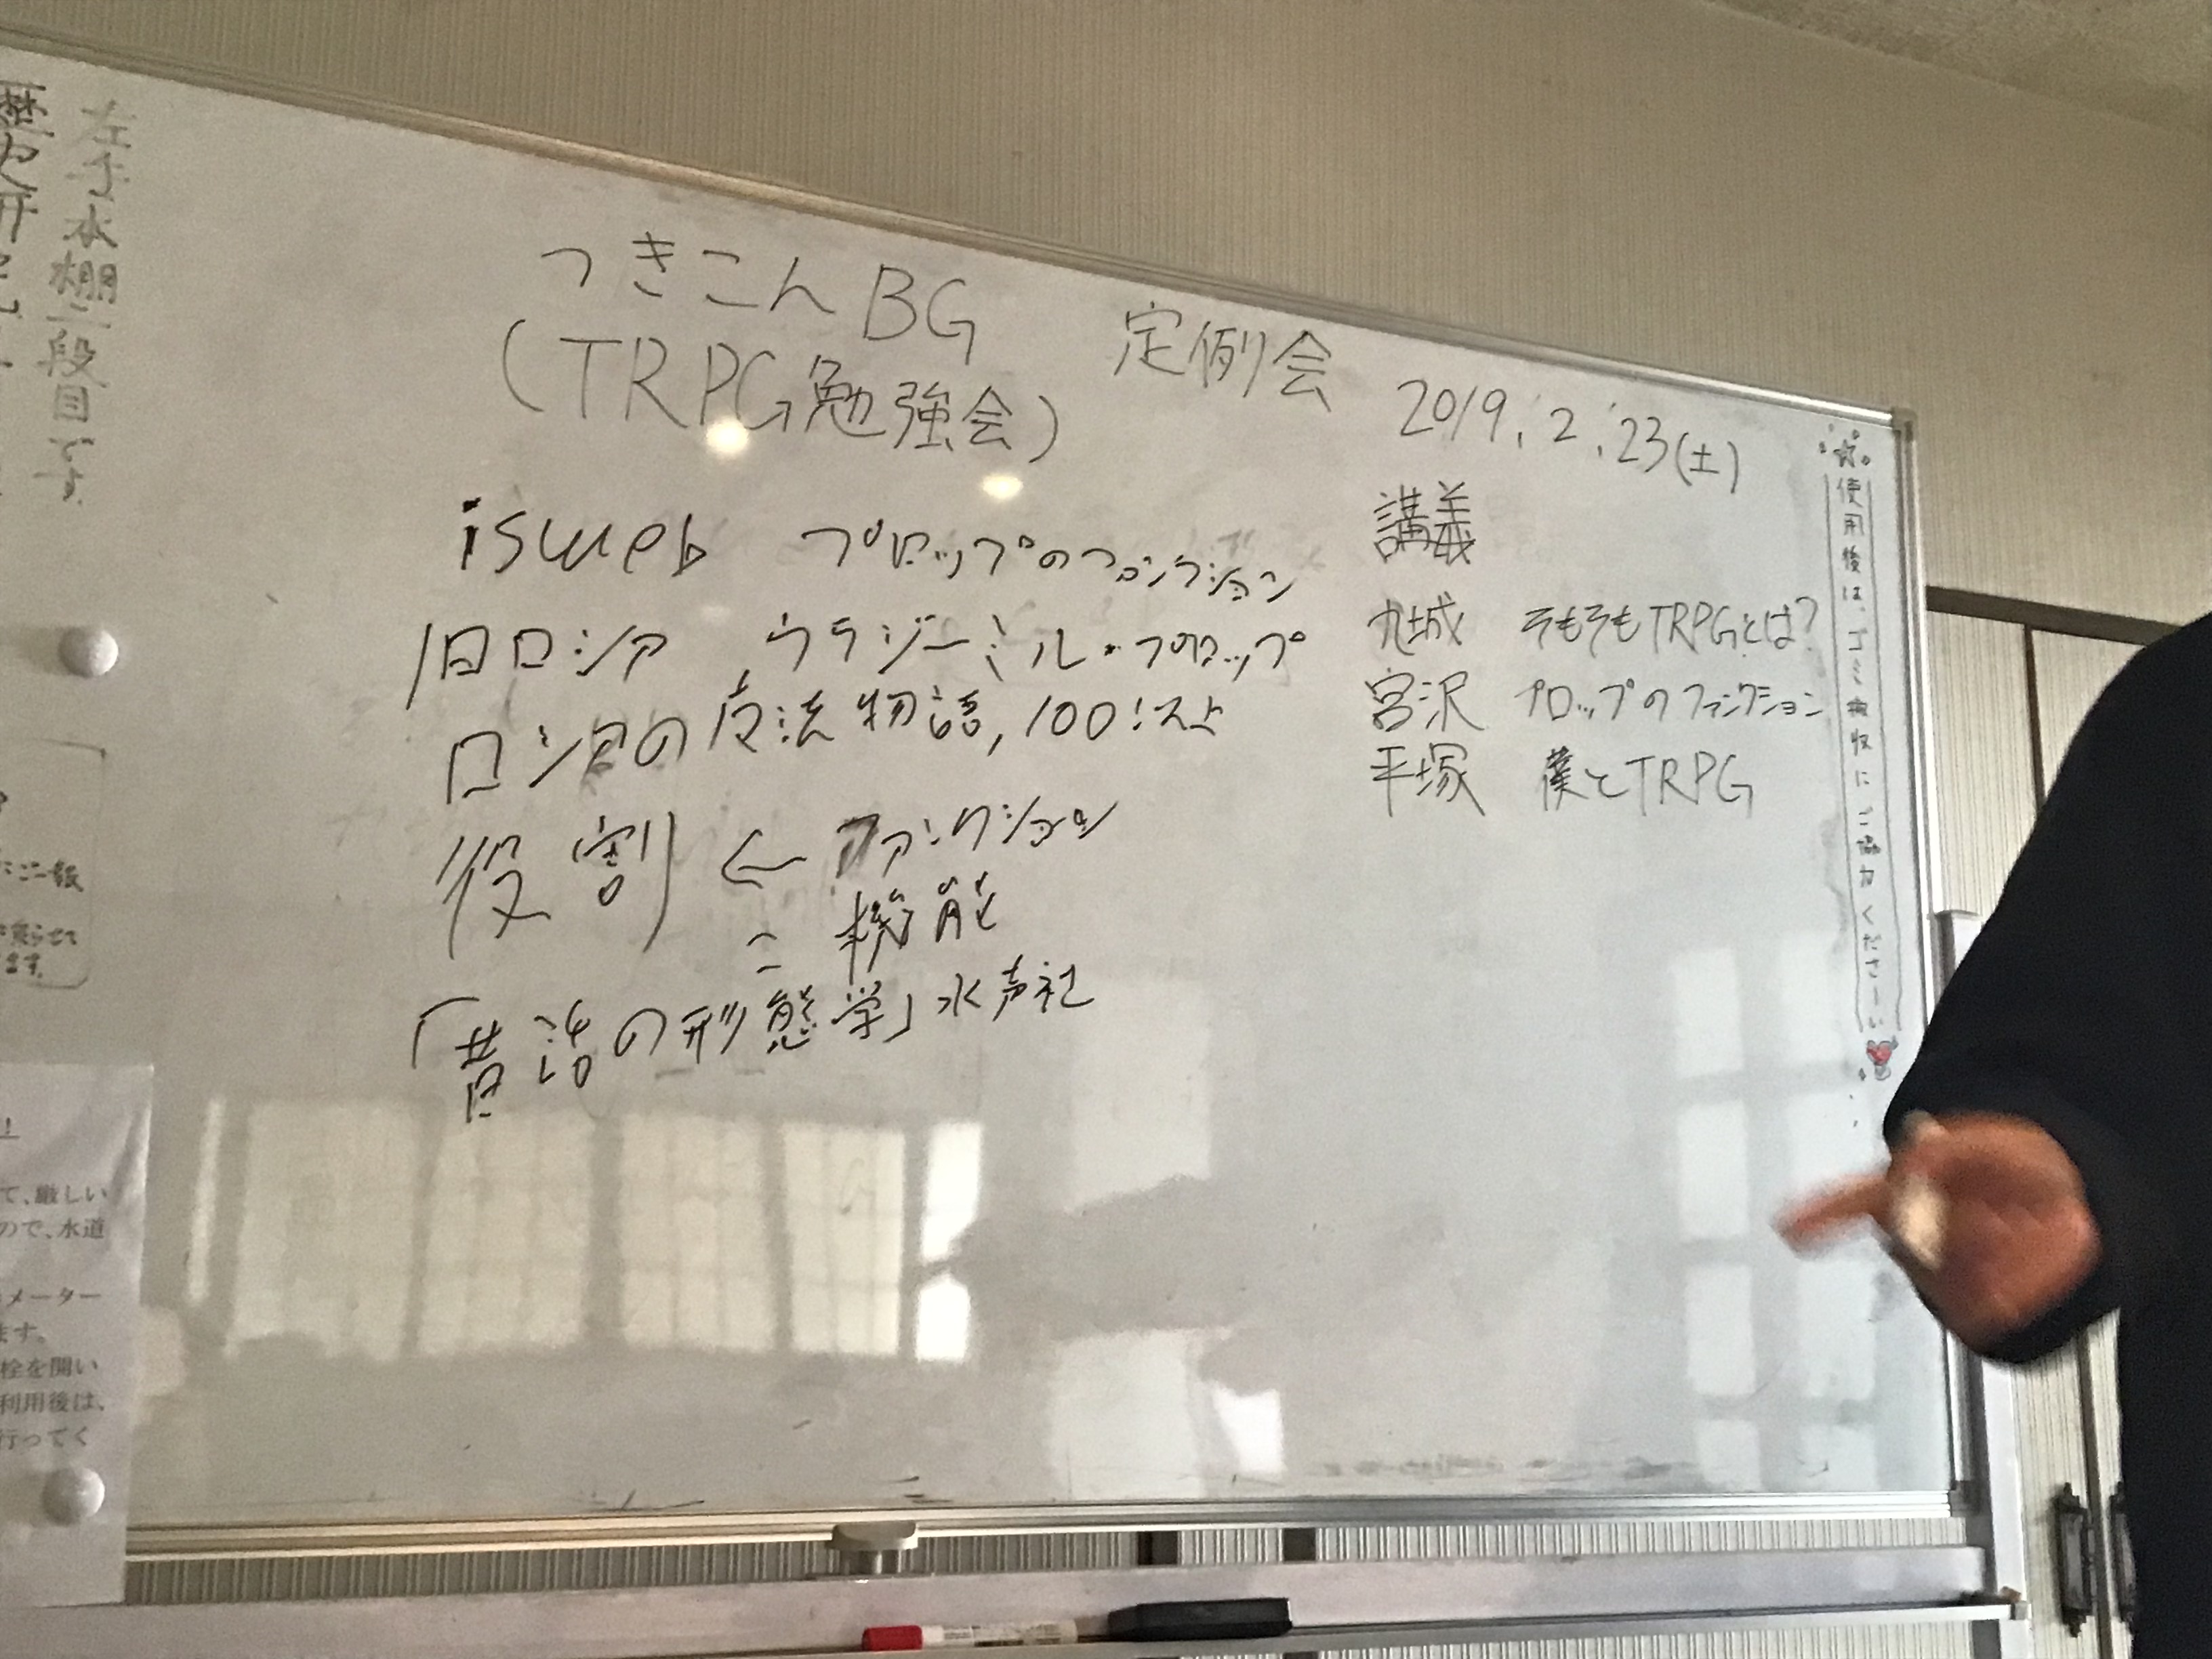 左手本棚二段目です。
つきこんBG
(TRPG勉強会)
定例会
2019.2.23(土)
isweb プロップのファンクション
旧ロシア ウラジーミル・プロップ
ロシアの魔法物語,100以上
役割 ← ファンクション
= 機能
「昔話の形態学」水声社
講義
九城 そもそもTRPGとは?
宮沢 プロップのファンクション
平塚 僕とTRPG
使用後は、ゴミ回収にご協力くださーい
て、厳しい
ので、水道
メーター
ます。
栓を開い
利用後は、
行ってく